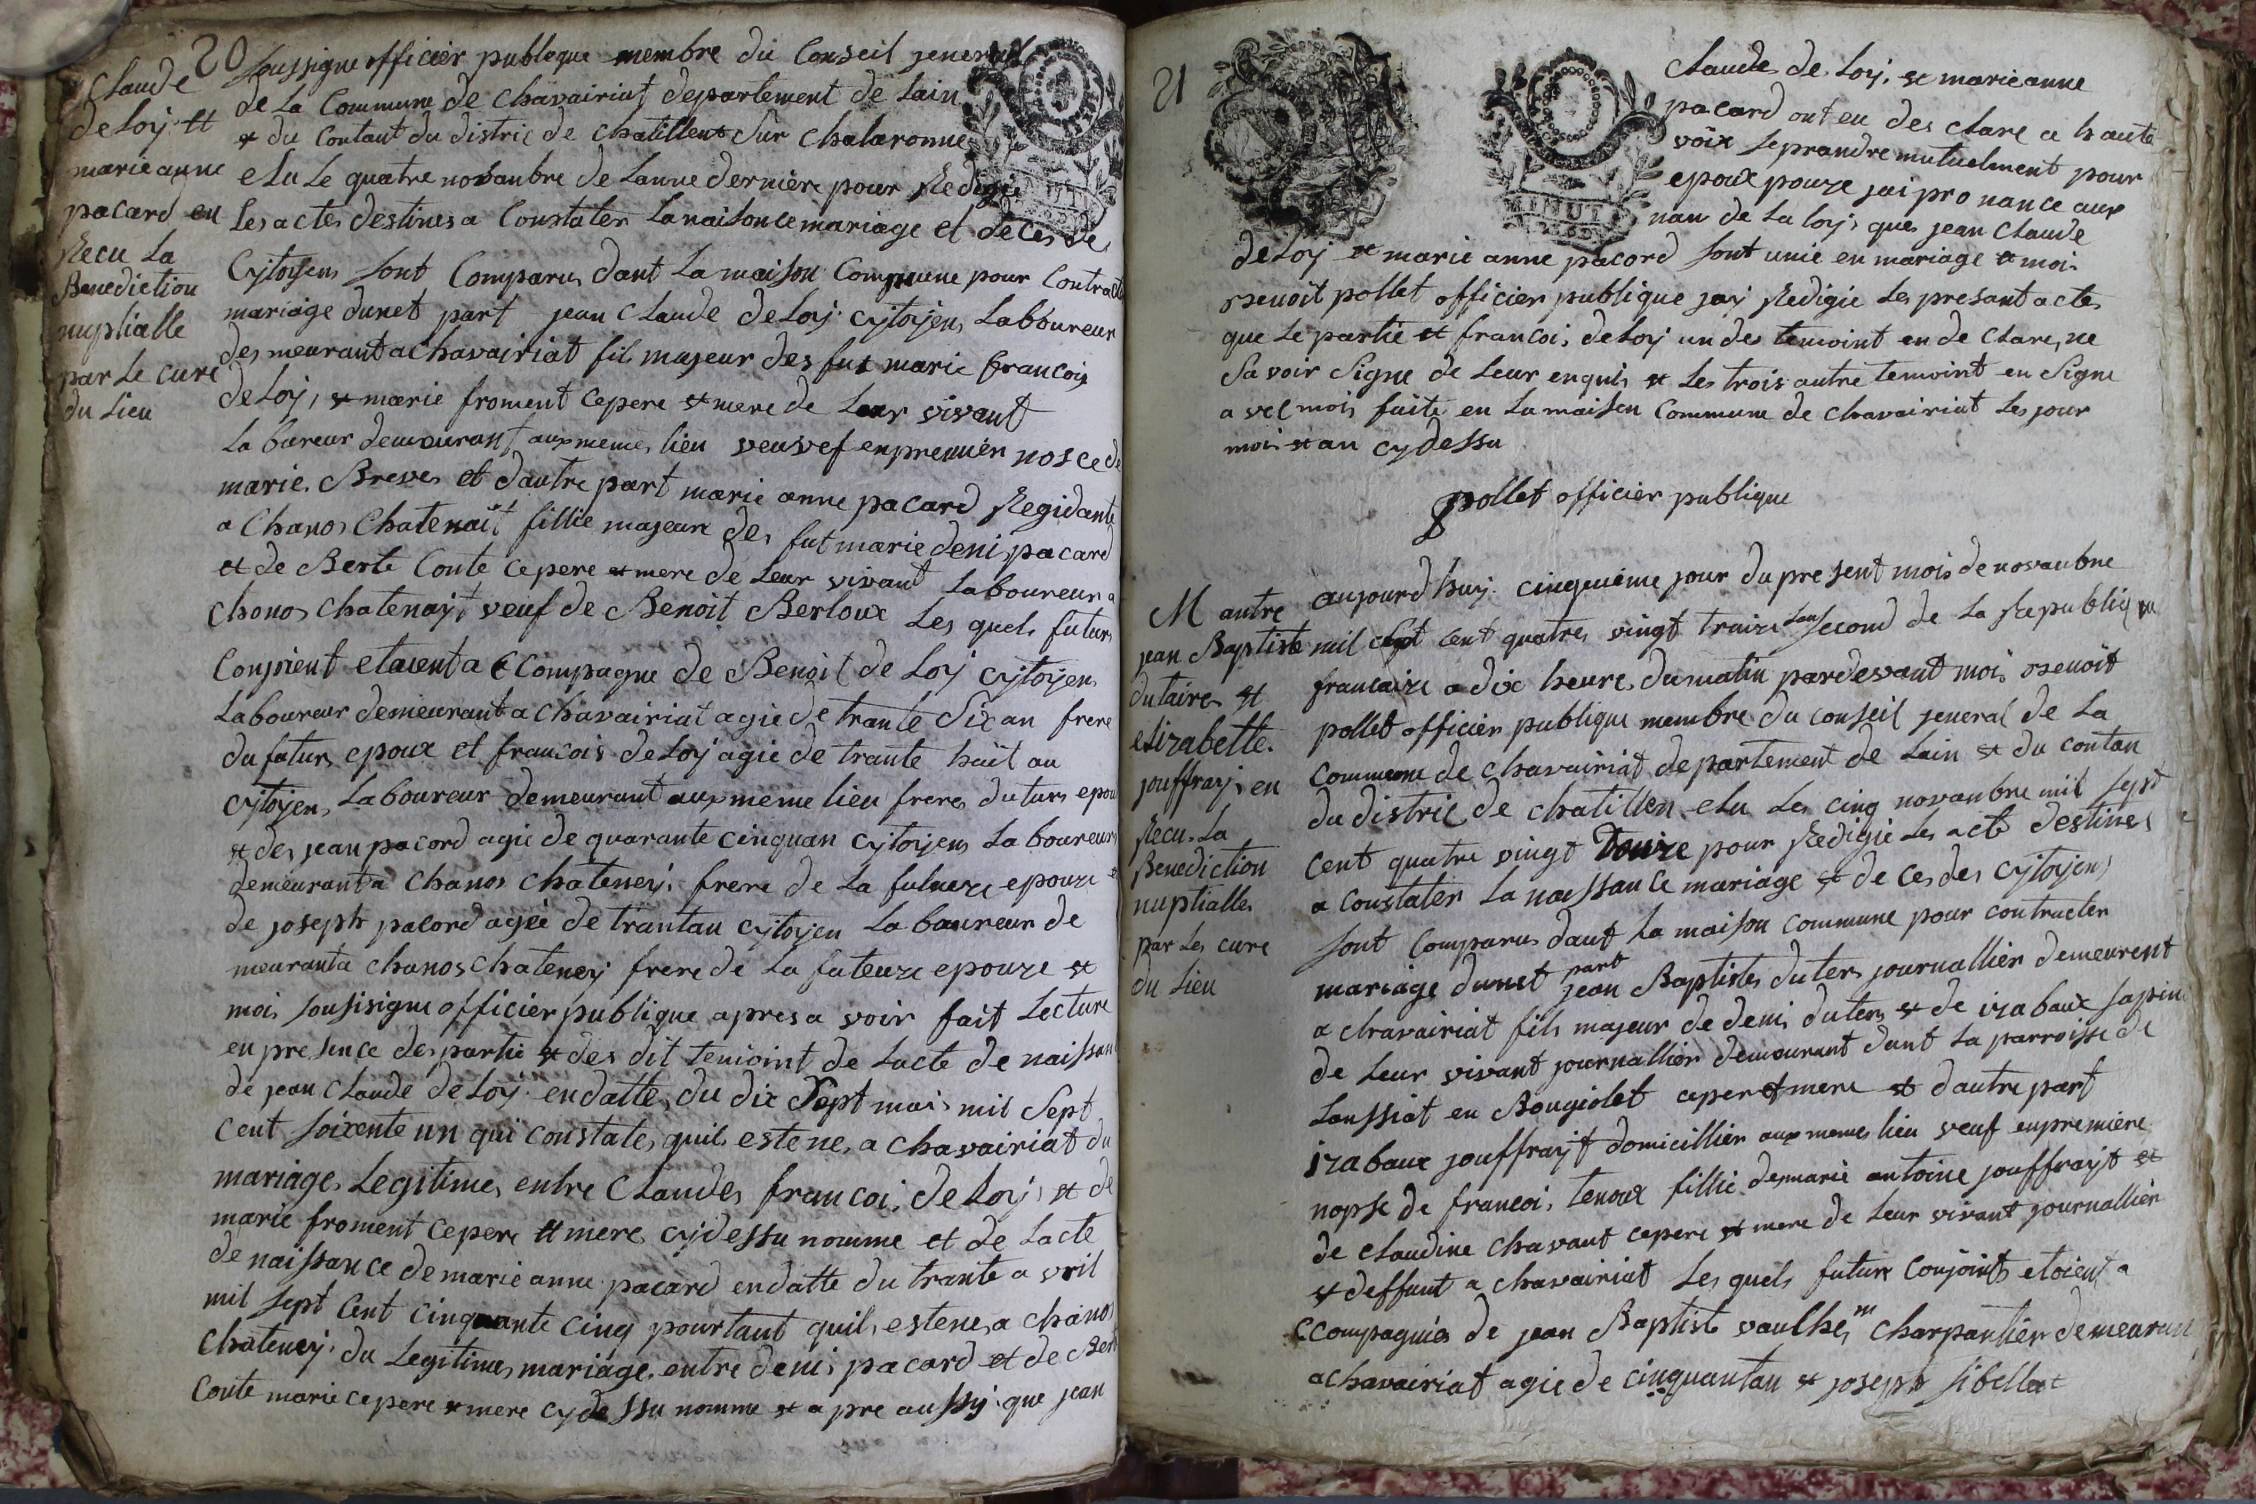 20
Claude
de Loy et
marie anne
pacard en
Recu La
Benediction
nuptialle
par Le cure
du Lieu
soussigne officier publoque membre du Conseil jeneral
de La Commune de chavairiat departement de Lain
et du Contant du distric de chatillent Sur chalaronne
elu Le quatre novanbre de Lanne derniere pour Redigie
Les actes destines a Constater La naisonce mariage et deces de
Cytoyens sont Comparus dant La maison Commune pour Contracte
mariage dunet part jean Claude de Loy cytoyens Laboureur
des meurant a Chavairiat fil majeur des fut marie francois
de Loy, et marie froment cepere et mere de Leur vivant
La boreur demourant aux memes lieu veuvef en premier nosce de
marie Breves et dautre part marie anne pacard Regidante
a Chanos Chatenait fillie majeure des fut marie deni pacard
et de Berte Conte cepere et mere de Leur vivant Laboureur a
Chonos Chatenayt veuf de Benoit Berloux Les quels futurs
Conjoient etaient a C Compagne de Benoit de Loy cytoyens
Laboureur demeurant a Chavairiat agie de trante Six an frere
du futurs epoux et francois de Loy agie de trante huit an
cytoyens Laboureur demeurant aux meme lieu freres duturs epou
et des jean pacord agie de quarante cinquan cytoyens Laboureurs
demeurant a Chanos Chateney frere de La futueze epouze et
de joseph pacord agée de trantan cytoyen Laboureur de
meurant a chanos chateney frere de La futeuze epouze et
mois sousisigne officier publique apres a voir fait Lecture
en presence des partie et des dit temoint de Lacte de naissan
de jean Claude de Loy en datte du dix Sept mai mil Sept
cent soixente un qui constates quils este ne a chavairiat du
mariages Legitimes entre Claudes francois de Loy et de
marie froment cepere et mere cydessu nomme et de Lacte
de naissance de marie anne pacard en datte du trante avril
mil sept cent cinquante cinq pourtant quil este ne a chanos
Chateney du Legitimes mariage entre deni pacard et de Bert
Conte marie cepere et mere cydessu nomme et apre aussy que jean
21
MINUTE
Claudes de Loy et marie anne
pacard ont eu des clare a haute
voix se prandre mutuelment pour
epoux pouze jai pro nance aux
nau de La loy ques jean Claude
de Loy et marie anne pacord sont unie en mariage et moi
Benoit pollet officier publique jay Redigie Les presant actes
que Le partie et francois de Loy un des temoint en de Clare, ne
Savoir Signe de Leur enquis et Les trois autre temoint en Signe
a vec mois faite en La maison Commune de chavairiat Les jour
mois et an cy dessu
pollet officier publique
M antre
jean Baptiste
dutaires et
elizabette
jouffray en
Recu La
Benediction
nuptialles
par Les cure
du Lieu
aujourd huy cinquiéme jour du present mois de novanbre
mil sept cent quatres vingt traize Lan second de La Republique
francaize a dix heures du matin pardevant moi Benoit
pollet officier publique membre du conseil jeneral de La
Commune de chavairiat departement de Lain et du contan
du distric de chatillon elu Les cinq novanbre mil sept
cent quatre vingt Douze pour Redigie Les acte destines
a Constater La naissance mariage et de ces des cytoyens
sont comparus dant La maison commune pour contracter
mariage dunet part jean Baptistes duters journallier demeurent
a chavairiat fils majeur de deni duters et de izabaux sapin
de Leur vivant journallier demourant dant La parroisse de
Laussiat en Bougiolet ceper et mere et dautre part
izabaux jouffrayt domicillier aux memes lieu veuf en premiere
nopse de francoi tenoux fillie de marie antoine jouffrayt et
de Claudine Chavant cepere et mere de Leur vivant journallier
et deffunt a chavairiat Les quels future Conjoints etoient a
Ccompagnies de jean Baptiste vaulhe charpantier demeurant
a chavairiat agie de cinquantan et joseph sibellat